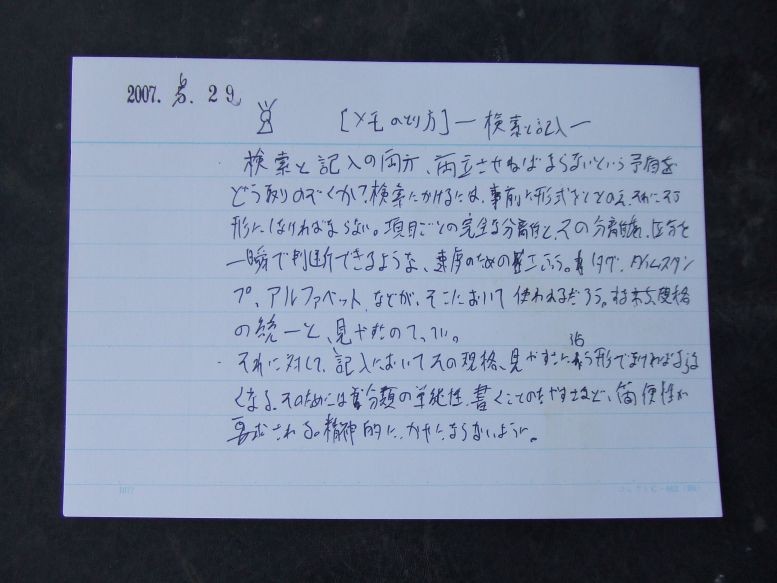 2007. 5. 29
[メモのとり方] ― 検索と記入 ―
・検索と記入の両方、両立させねばならないという矛盾を
どう取りのぞくか？検索にかけるには、事前に形式をととのえ、それにそう
形にしなければならない。項目ごとの完全な分離性と、その分離、区分を
一瞬で判断できるような、速度のための ろう。タグ、タイムスタン
プ、アルファベット、などが、そこにおいて使われるだろう。 規格
の統一と、見やすさの
・それに対して、記入においてその規格、見やすさに沿う形でなければならな
くなる。そのためには分類の単純性、書くことのたやすさなど、簡便性が
要求される。精神的に、かせにならないように。